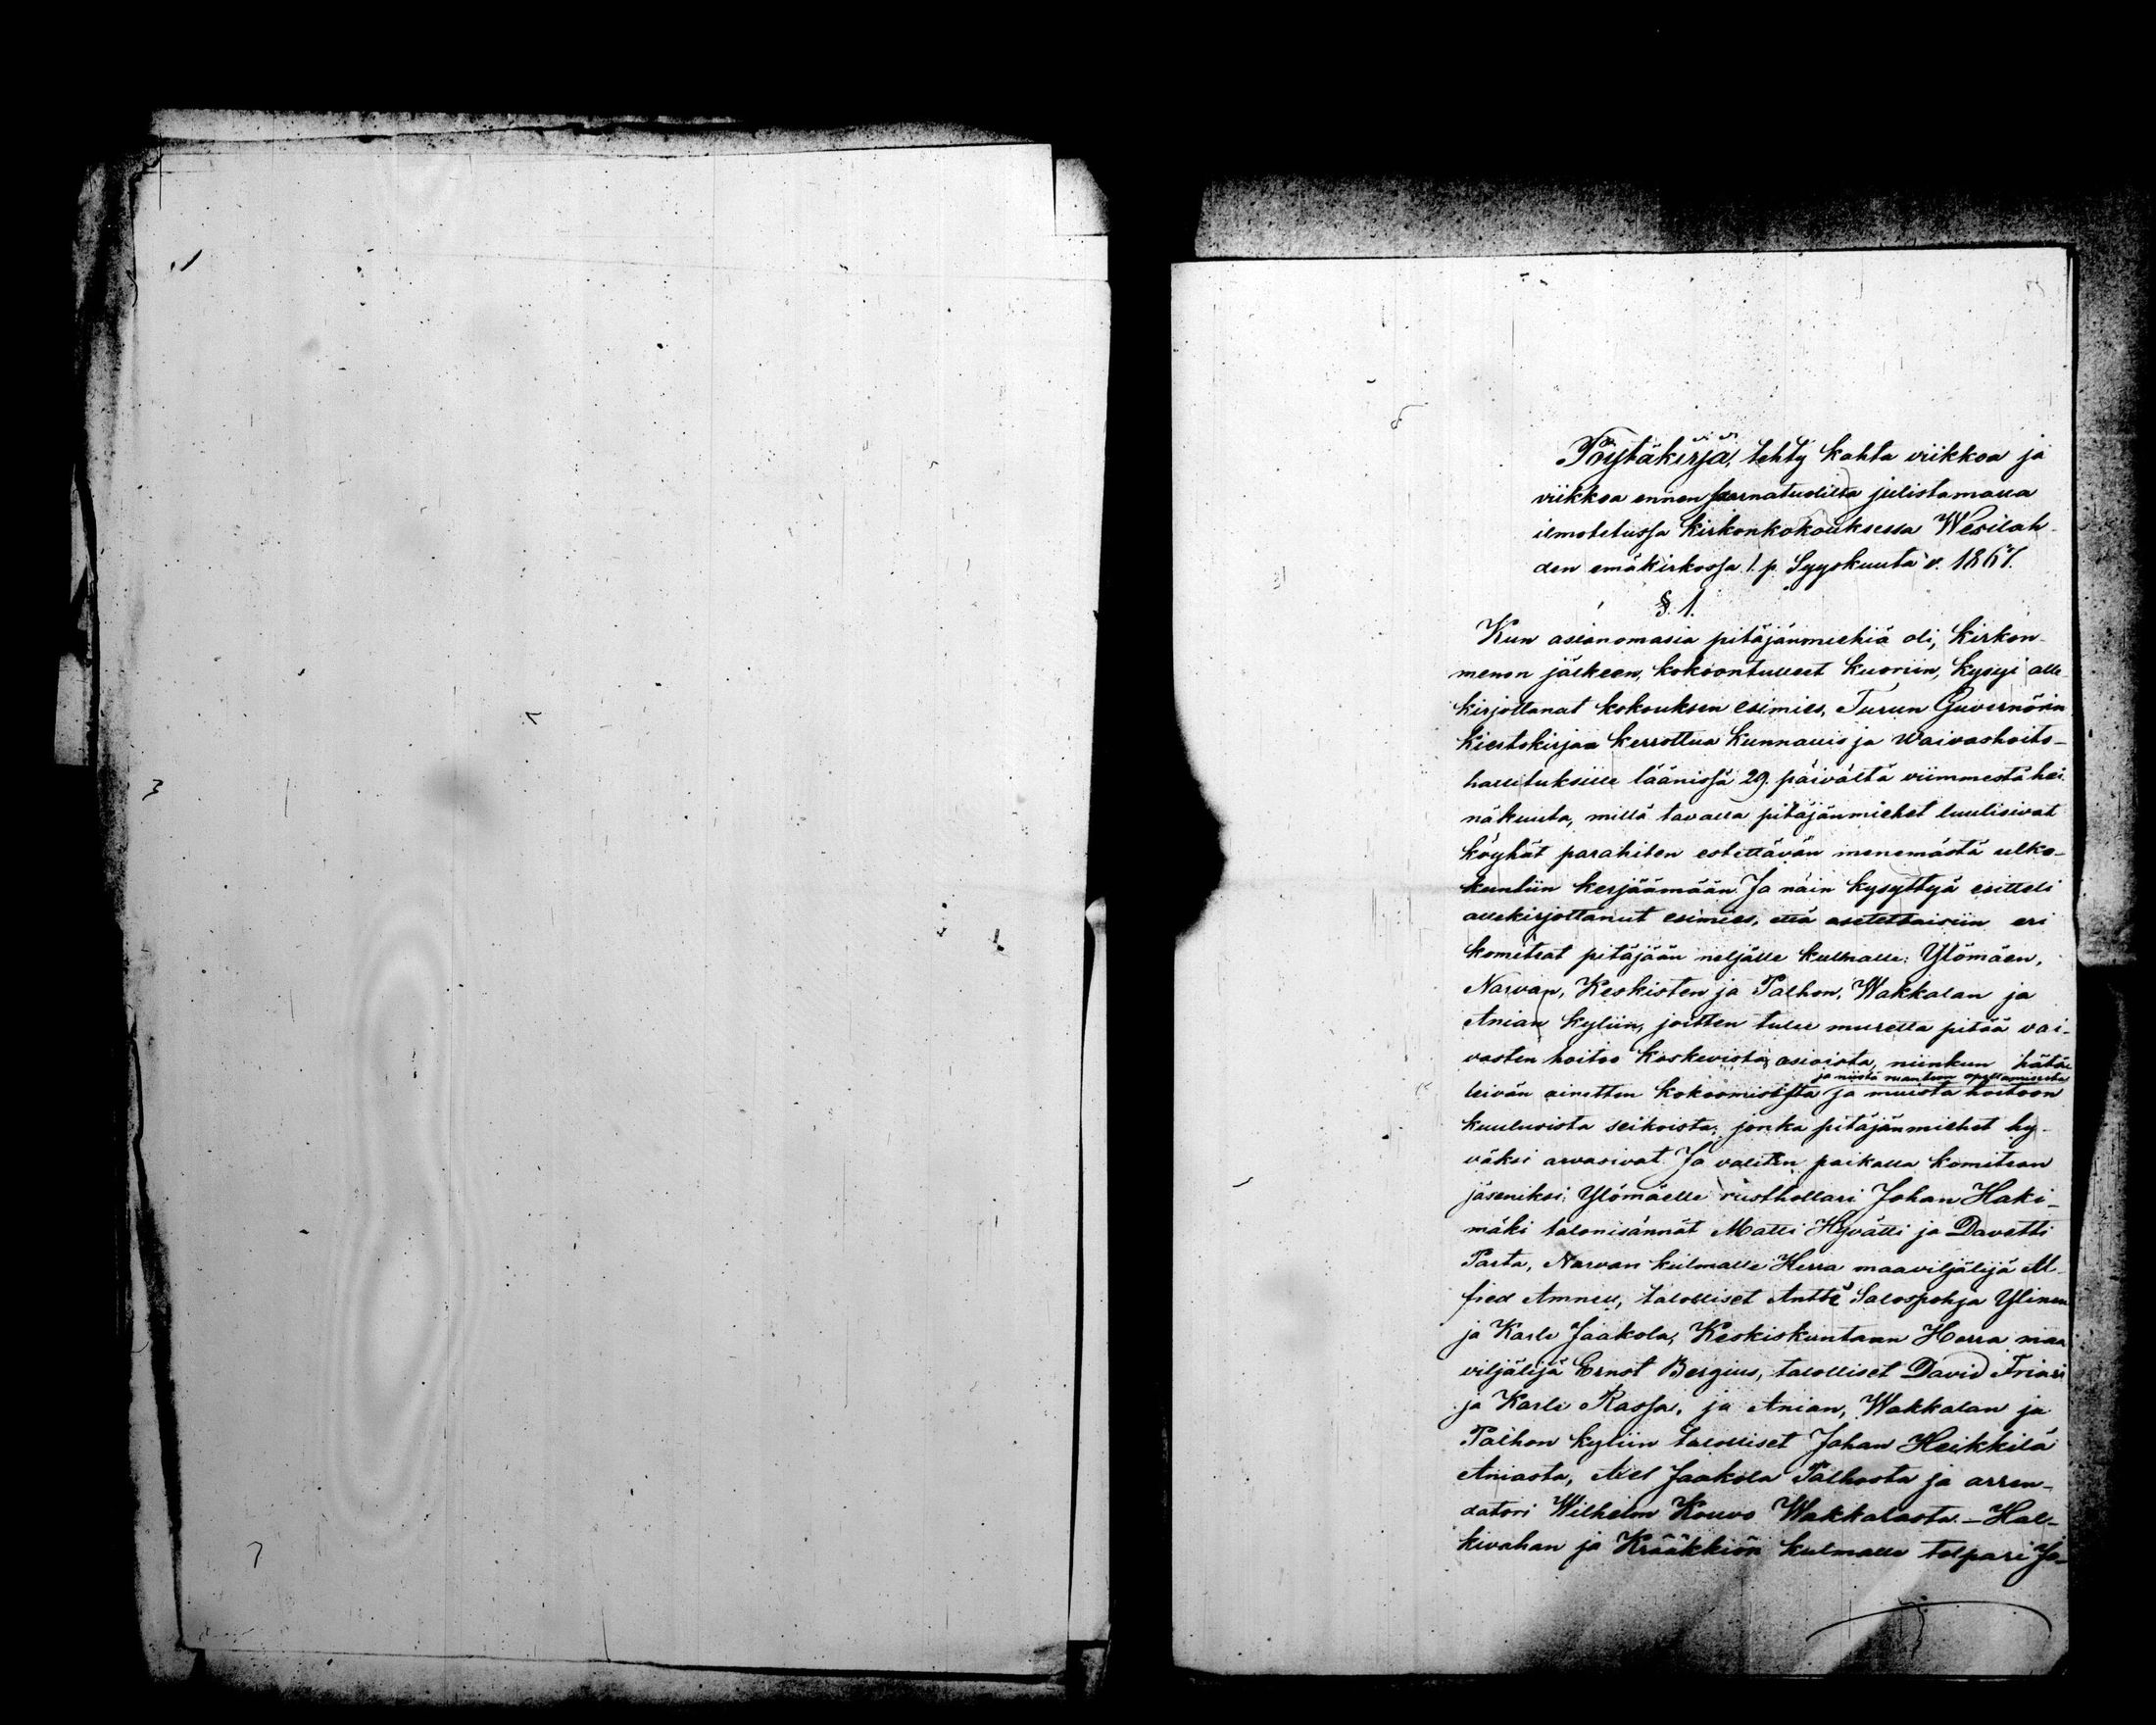 Pöytäkirja, tehty kahta viikkoa ja
viikkoa ennen saarnatuolilta julistamalla
ilmotetussa kirkonkokouksessa Wesilah-
den emäkirkossa 1. p. Syyskuuta v. 1867.
§. 1.
Kun asianomasia pitäjänmiehiä oli, kirkon-
menon jälkeen, kokoontulleet kuoriin, kysyi alle
kirjottanut kokouksen esimies, Turun Guvernörin
kiertokirjaa kerrottua kunnallis ja waivashoito-
hallituksille läänissä 29. päivältä viimmestä hei
näkuuta, millä tavalla pitäjänmiehet luulisivat
köyhät parahiten estettävän menemästä ulko-
kuntiin kerjäämään. Ja näin kysyttyä esitteli
allekirjottanut esimies, että asetettaisiin eri
komiteat pitäjään neljälle kulmalle: Ylömäen,
Narvan, Keskisten ja Palhon, Wakkalan ja
Anian kyliin, joitten tulee murella pitää vai-
vasten hoitoo koskevista asioista, niinkun hätä
ja niistä ruantuen opettamisesta
leivän ainetten kokoomisesta ja muista hoitoon
kuuluvista seikoista; jonka pitäjänmiehet hy-
väksi arvasivat. Ja valittin paikalla komitean
jäseniksi: Ylömäelle rusthollari Johan Haki-
mäki talonisännät Matti Hyvätti ja Davetti
Parta, Narvan kulmalle Herra maaviljälijä Al-
fred Amnell, talolliset Antti Salospohja Ylinen
ja Karle Jaakola, Keskiskuntaan Herra maa
viljälijä Ernst Bergius, talolliset David Friari
ja Karle Rassa, ja Anian, Wakkalan ja
Palhon kyliin talolliset Johan Heikkilä
Aniasta, Axel Jaakola Palhosta ja arren-
datori Wilhelm Kouvo Wakkalasta. - Hal-
kivahan ja Krääkkiön kulmalle tolpari Jo-